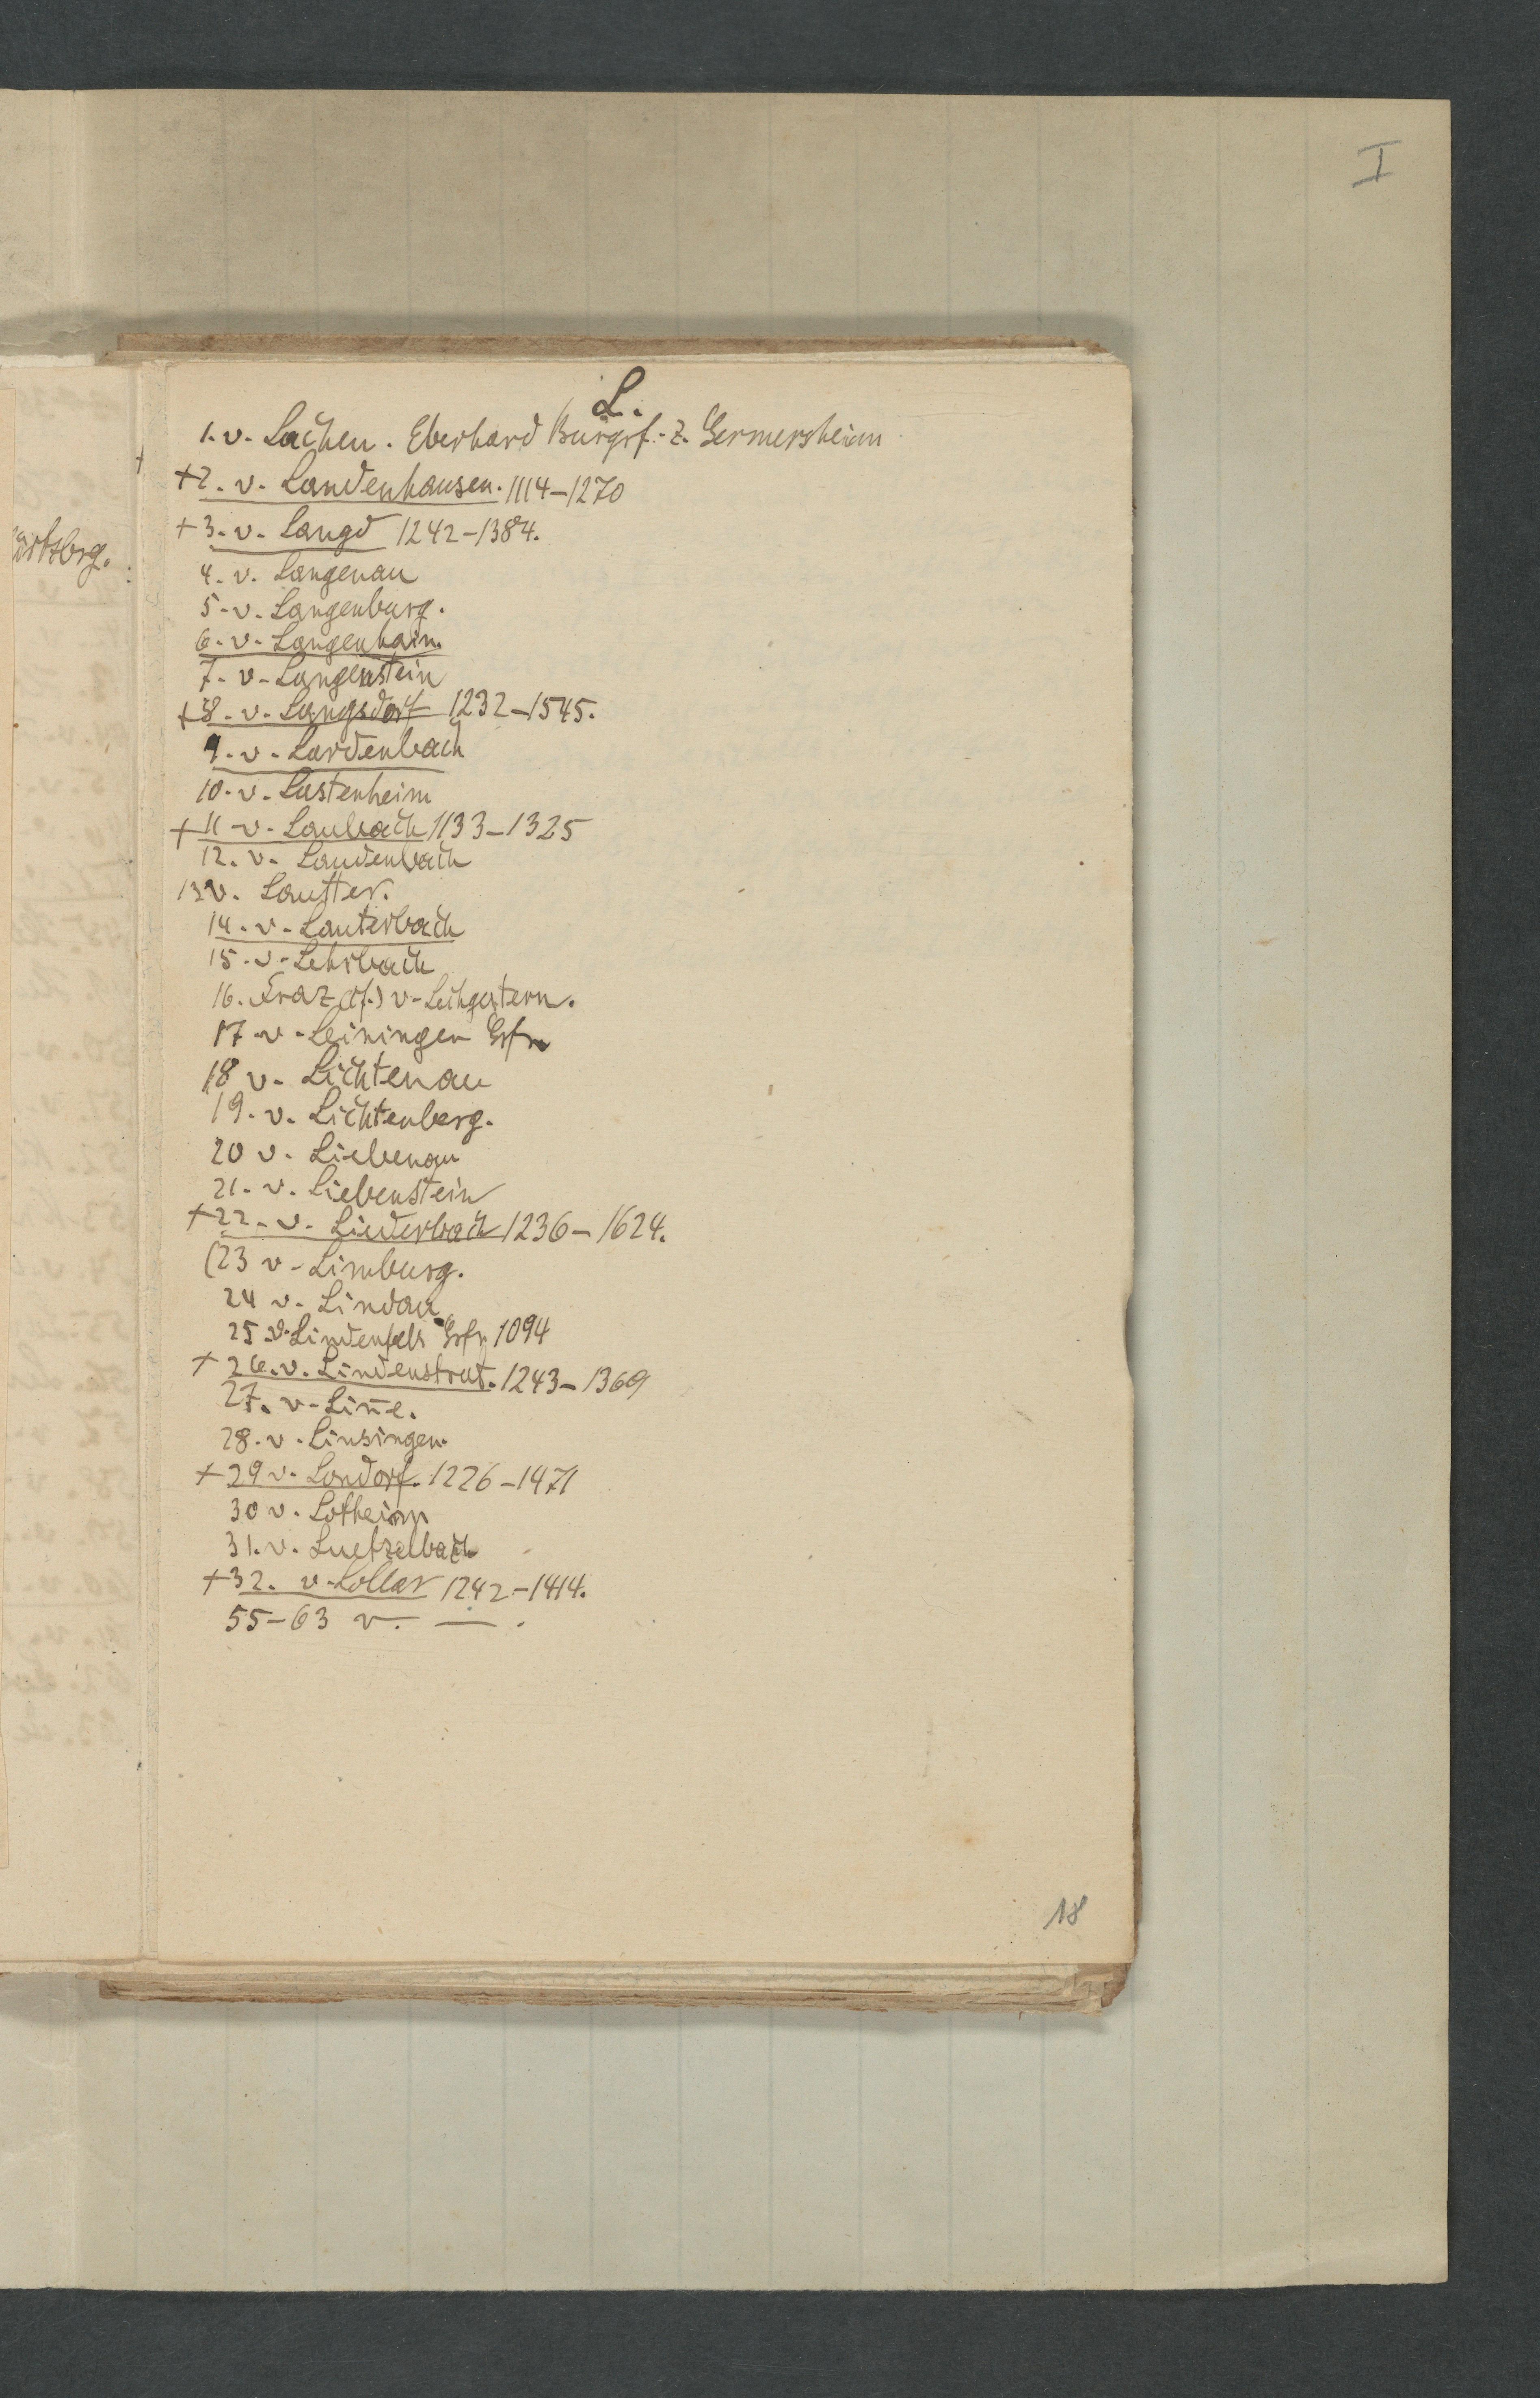 I
L.
1. v. Lachen. Eberhard Burgrf. z. Germersheim
+2. v. Landenhausen. 1114-1270
+3. v. Langd 1242-1384.
4. v. Langenau
5. v. Langenburg.
6. v. Langenhain.
7. v. Langenstein
+8. v. Langsdorf 1232-1545.
9. v. Lardenbach
10. v. Lastenheim
+11 v. Laubach 1133-1325
12. v. Laudenbach
13 v. Lautter.
14. v. Lauterbach
15. v. Lehrbach
16. v. Leihgestern.
17 v. Leiningen Grfn
18 v. Lichtenau
19. v. Lichtenberg.
20 v. Liebenau
21. v. Liebenstein
+22. v. Liederbach 1236-1624.
(23 v. Limburg.
24 v. Lindau
25 v. Lindenfels Grfn 1094
+ 26. v. Lindenstrut. 1243-1369
27. v. Lin̄e.
28. v. Linsingen.
+29 v. Londorf. 1226-1471
30 v. Lotheim
31. v. Luetzelbach
+32. v. Lollar 1242-1414.
55-63 v. — .
18